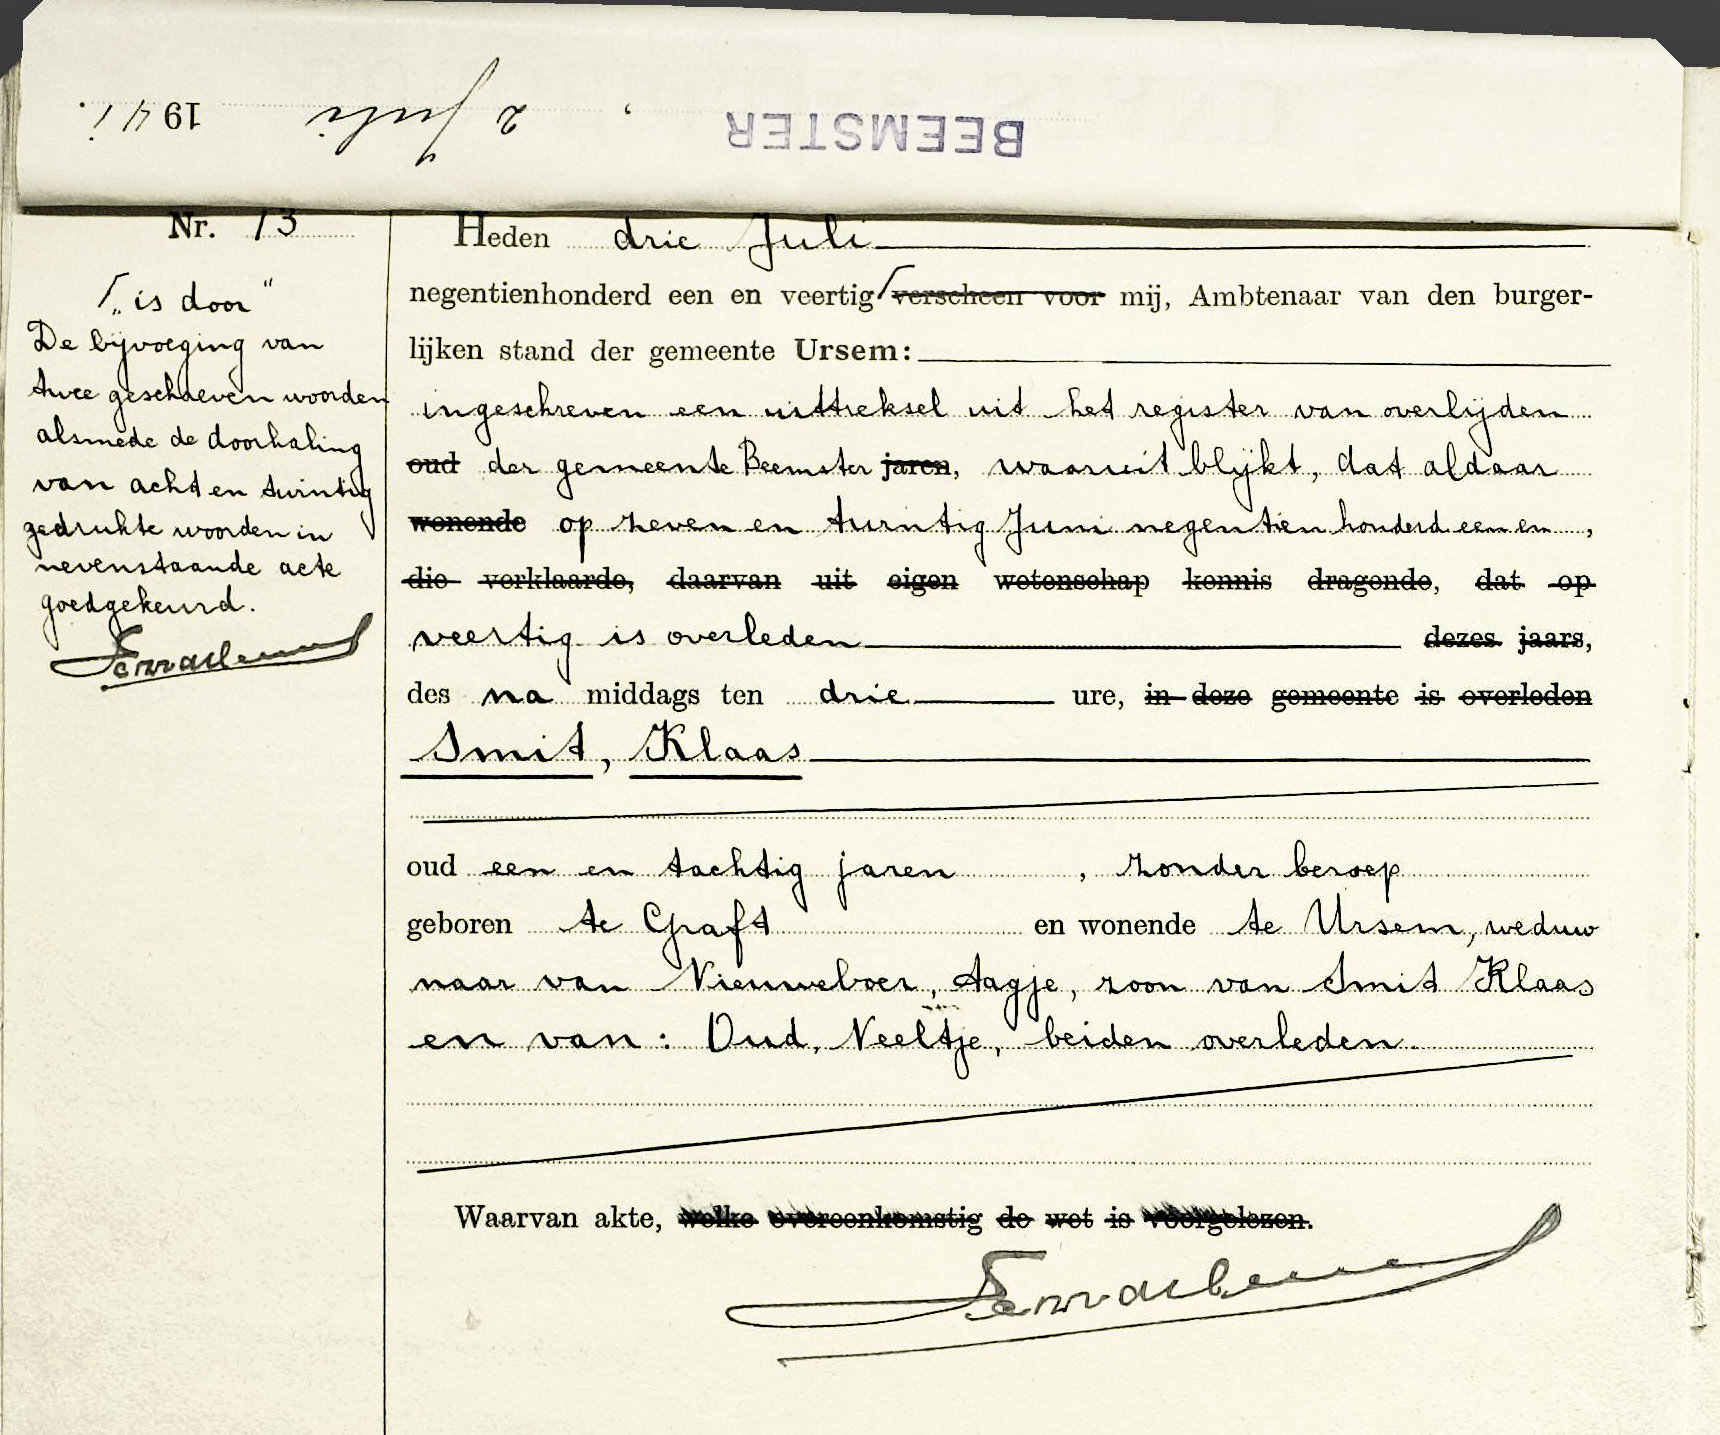 BEEMSTER , 2 Juli 1941.
Nr. 13
„is door"
De bijvoeging van
twee geschreven woorden
alsmede de doorhaling
van acht en twintig
gedrukte woorden in
nevenstaande acte
goedgekeurd.
Heden drie Juli
negentienhonderd een en veertig verscheen voor mij, Ambtenaar van den burger-
lijken stand der gemeente Ursem:
ingeschreven een uittreksel uit het register van overlijden
oud der gemeente Beemster jaren, waaruit blijkt, dat aldaar
wonende op zeven en twintig Juni negentienhonderd een en ,
die verklaarde, daarvan uit eigen wetenschap kennis dragende, dat op
veertig is overleden dezes jaars,
des na middags ten drie ure, in deze gemeente is overleden
Smit, Klaas
oud een en tachtig jaren , zonder beroep
geboren te Graft en wonende te Ursem, weduw
naar van Nieuweboer, Aagje, zoon van Smit Klaas
en van: Oud, Neeltje, beiden overleden.
Waarvan akte, welke overeenkomstig de wet is voorgelezen.